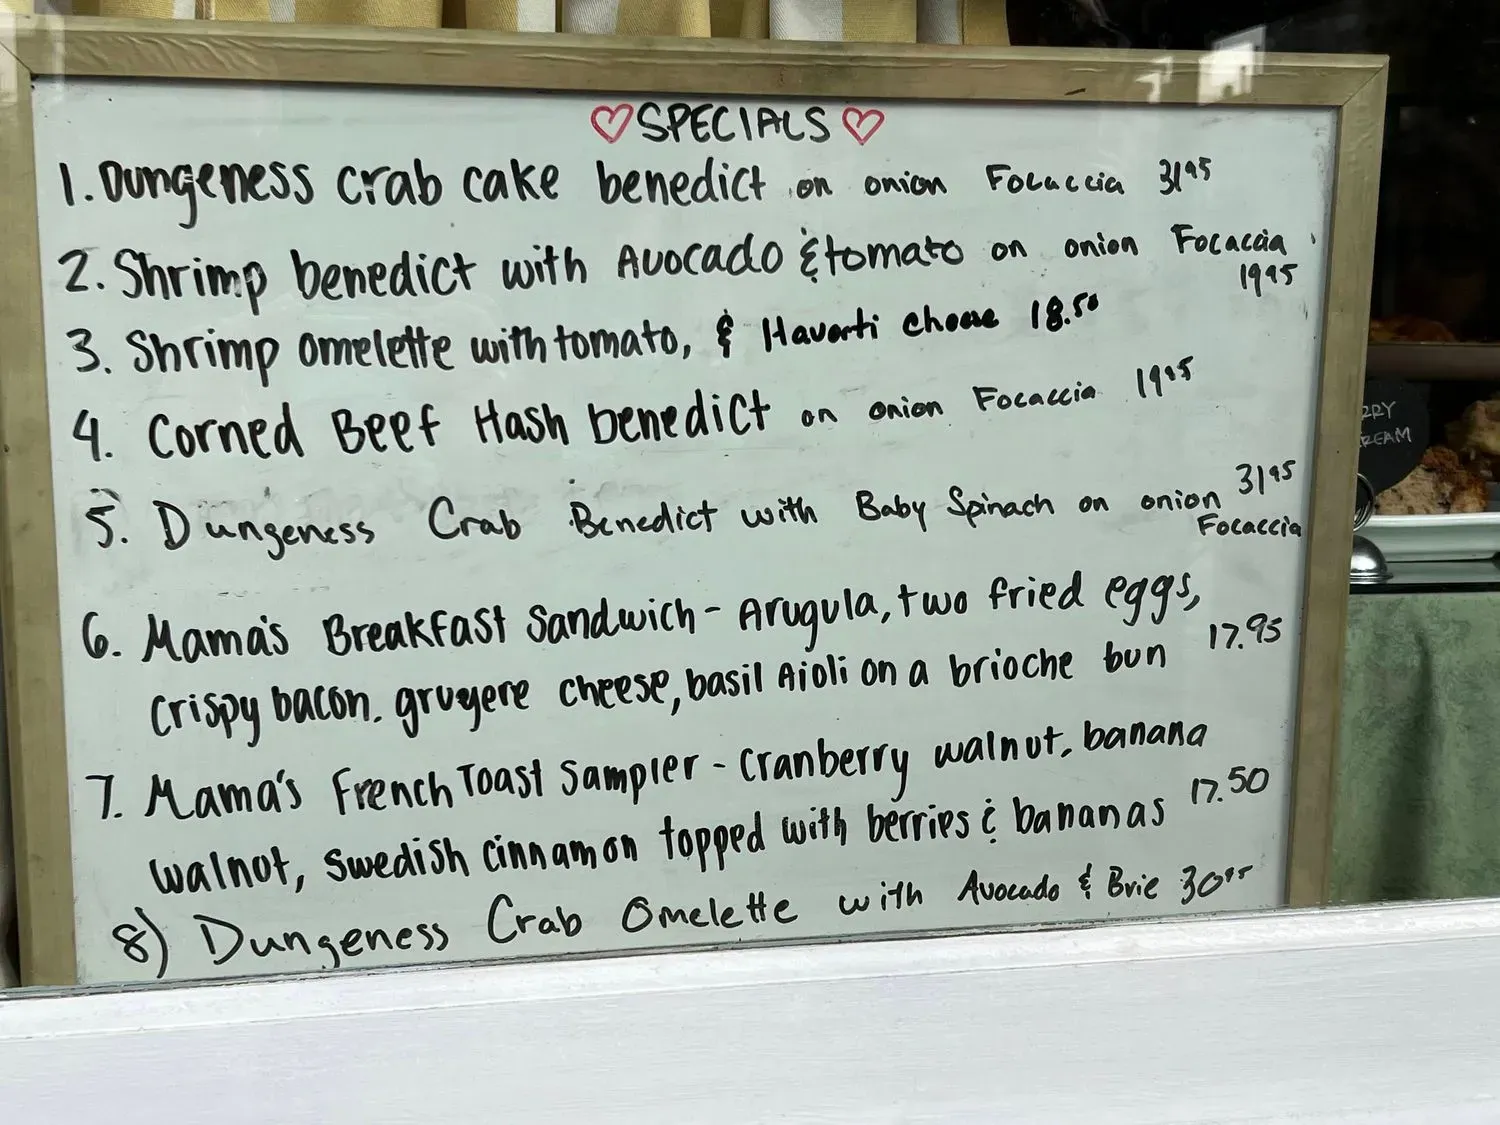 ♡SPECIALS♡
1. Dungeness crab cake benedict on onion Focaccia 31⁹⁵
2. Shrimp benedict with Avocado & tomato on onion Focaccia
19⁹⁵
3. Shrimp omelette with tomato, & Havarti cheese 18.⁵⁰
4. Corned Beef Hash benedict on onion Focaccia 19⁹⁵
5. Dungeness Crab Benedict with Baby Spinach on onion 31⁹⁵
Focaccia
6. Mama's Breakfast Sandwich - Arugula, two fried eggs,
crispy bacon. gruyere cheese, basil Aioli on a brioche bun 17.95
7. Mama's French Toast Sampler - cranberry walnut, banana
walnut, swedish cinnamon topped with berries & bananas 17.50
8) Dungeness Crab Omelette with Avocado & Brie 30⁹⁵